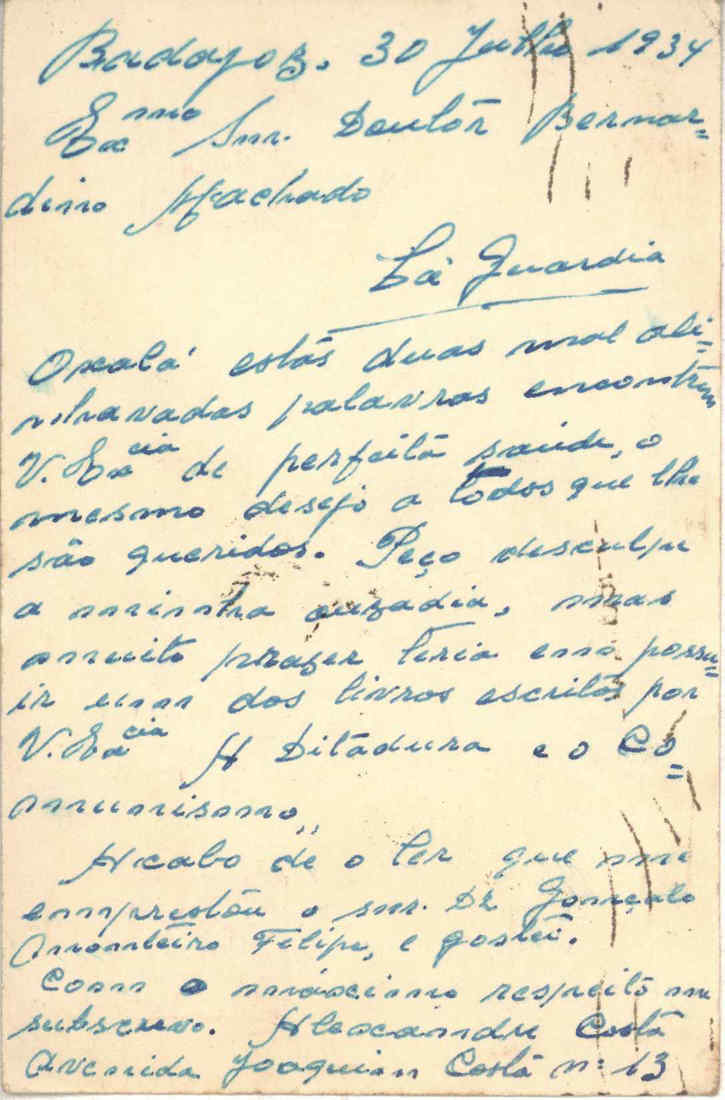 Badajoz. 30 Julho 1934
Exmo Snr. Doutôr Bernar=
dino Machado
La Guardia
Oxalá estás duas mal ali=
nhavadas palavras encontrem
V. Excia de perfeitá saúde, o
mesmo desejo a todos que lhe
são queridos. Peço desculpa
a minha ouzadia, mas
muito prazer teria em possu=
ir um dos livros escritos por
V. Excia A Ditadura e o Co=
munismo,,
Acabo de o ler que me
emprestou o snr. Dr Gonçalo
Monteiro Filipe, e gostei.
Com o máximo respeito me
subscrevo. Alexandre Costa
Avenida Joaquim Costa nº 13